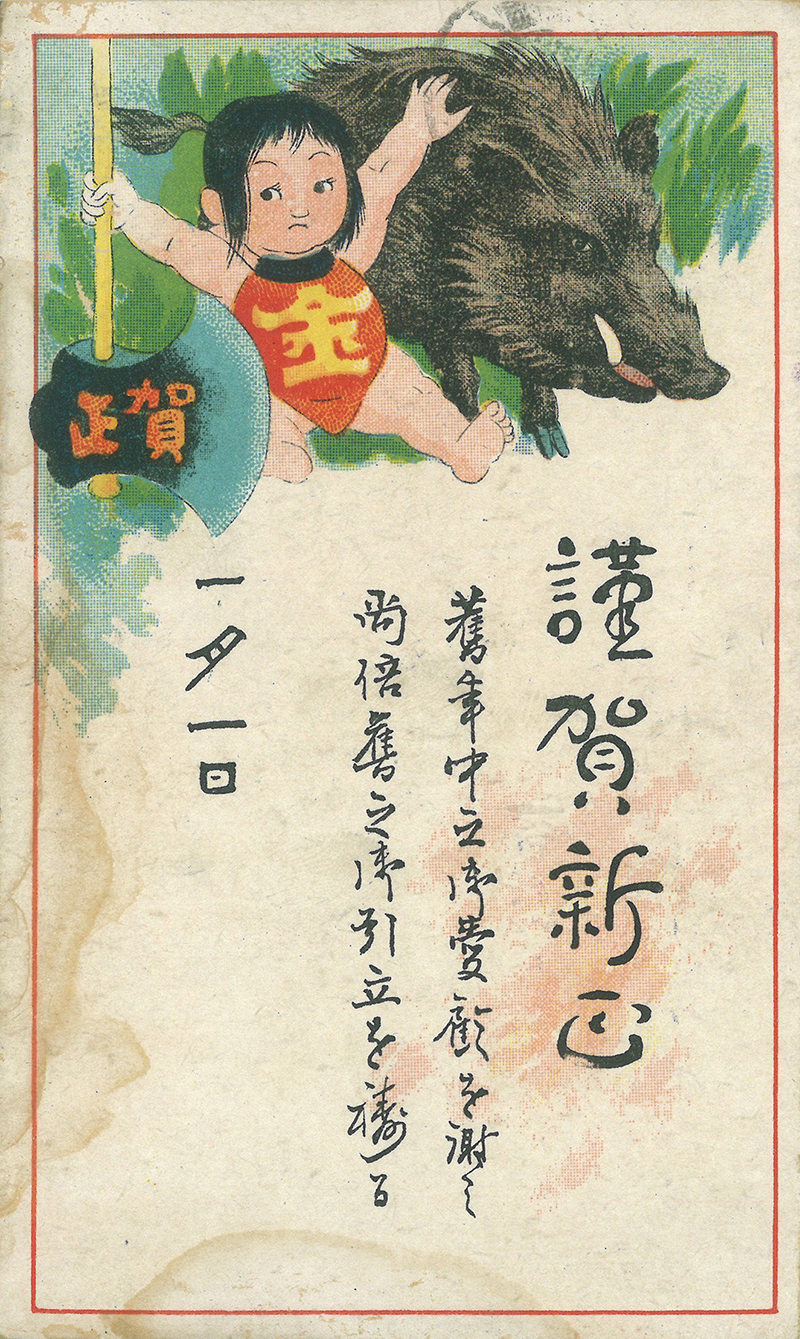 金
賀正
謹賀新正
舊年中之御愛顧を謝し
尚倍舊之御引立を禱る
一月一日